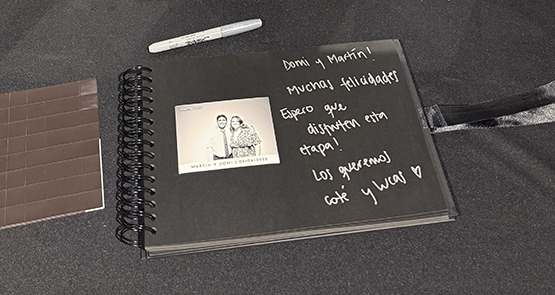 Domi y Martín!
Muchas felicidades
Espero que
disfruten esta
etapa!
Los queremos
Coté y Lucas ♡
MARTIN Y DOMI